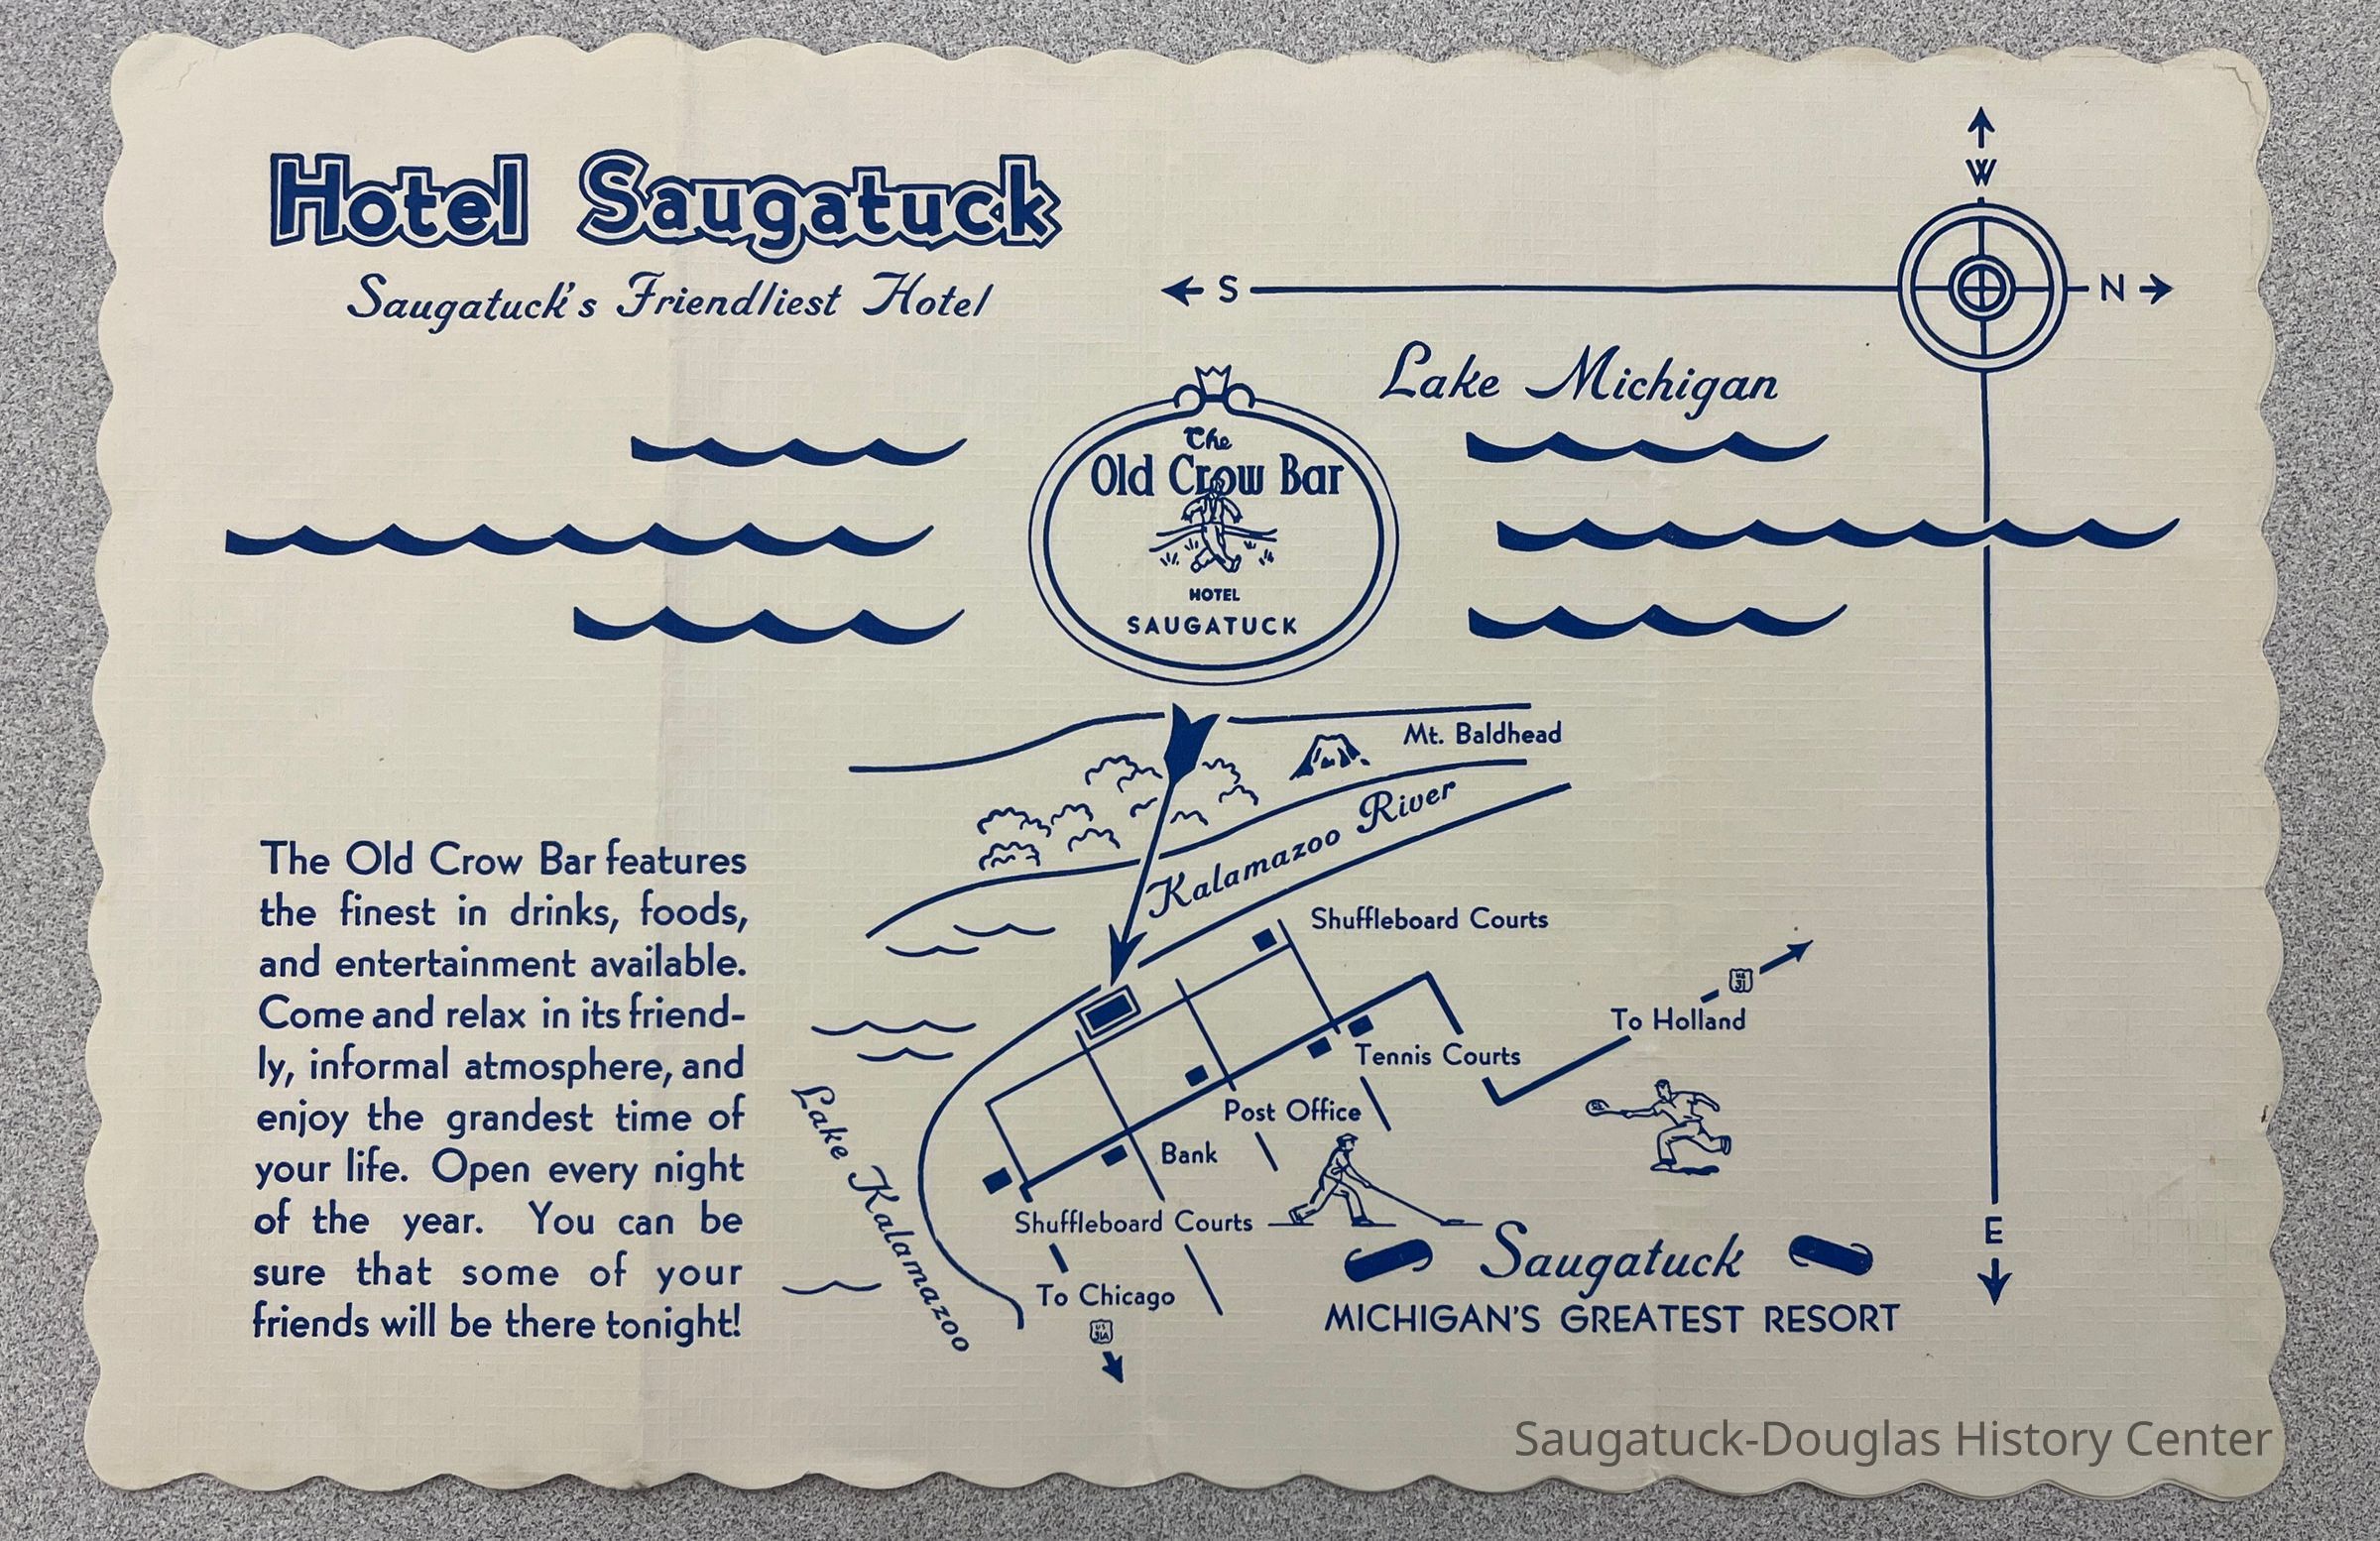 Hotel Saugatuck
Saugatuck's Friendliest Hotel
W
S
N
Lake Michigan
The
Old Crow Bar
HOTEL
SAUGATUCK
Mt. Baldhead
Kalamazoo River
The Old Crow Bar features
the finest in drinks, foods,
and entertainment available.
Come and relax in its friend-
ly, informal atmosphere, and
enjoy the grandest time of
your life. Open every night
of the year. You can be
sure that some of your
friends will be there tonight!
Shuffleboard Courts
US
31
To Holland
Tennis Courts
Lake Kalamazoo
Post Office
Bank
Shuffleboard Courts
E
To Chicago
US
31A
Saugatuck
MICHIGAN'S GREATEST RESORT
Saugatuck-Douglas History Center